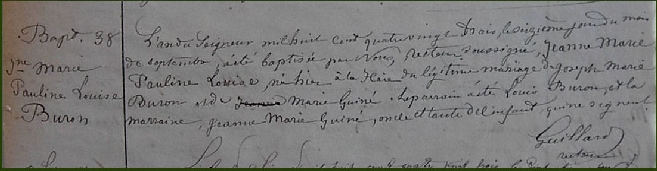 Bapt. 38
Jne Marie
Pauline Louise
Buron
L'an du Seigneur mil huit cent quatre vingt trois, le sixième jour du mois
de septembre, a été baptisée par Nous, recteur soussigné, Jeanne Marie
Pauline Louise, née hier à la du légitime mariage de Joseph Marie
Buron et de Marie Guiné. Le parrain a été Louis Buron, et la
marraine, Jeanne Marie Guiné, oncle et tante de l'enfant, qui ne signent
Guillard
recteur